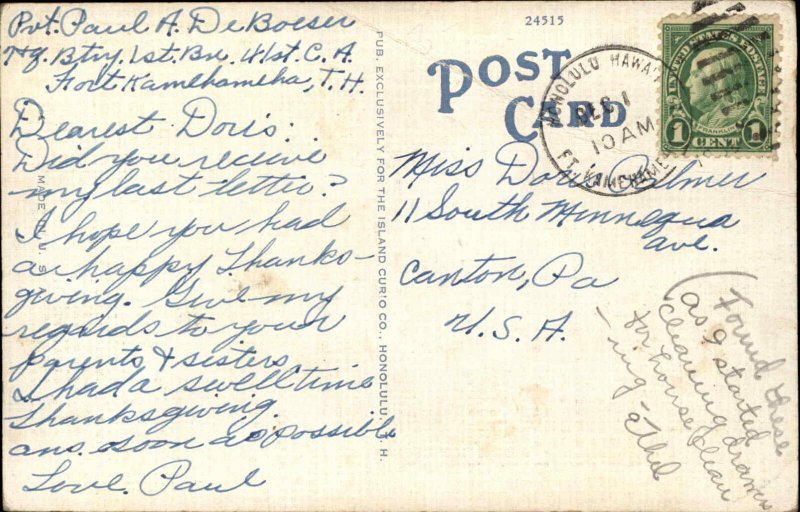 Pvt. Paul A. DeBoeser
Hq. Btry. 1st. Bn. 41st. C.A
Fort Kamehameha, T.H.
Dearest Doris:
Did you receive
my last letter?
I hope you had
a happy Thanks-
giving. Give my
regards to your
parents & sisters
I had a swell time
Thanksgiving.
ans. soon as possible
Love, Paul
MADE IN U.S.
PUB. EXCLUSIVELY FOR THE ISLAND CURIO CO., HONOLULU, T. H.
24515
POST
CARD
HONOLULU HAWAII
DEC 1
10 AM
FT. KAMEHAMEHA
UNITED STATES POSTAGE
FRANKLIN
1 CENT 1
Miss Doris
11 South Minnequa
ave.
Canton, Pa
U.S.A.
(Found these
as I started
cleaning drawers
for house clean
-ing - Ethel